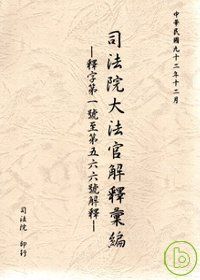 中華民國九十二年十二月
司法院大法官解釋彙編
—釋字第一號至第五六六號解釋—
司法院 印行